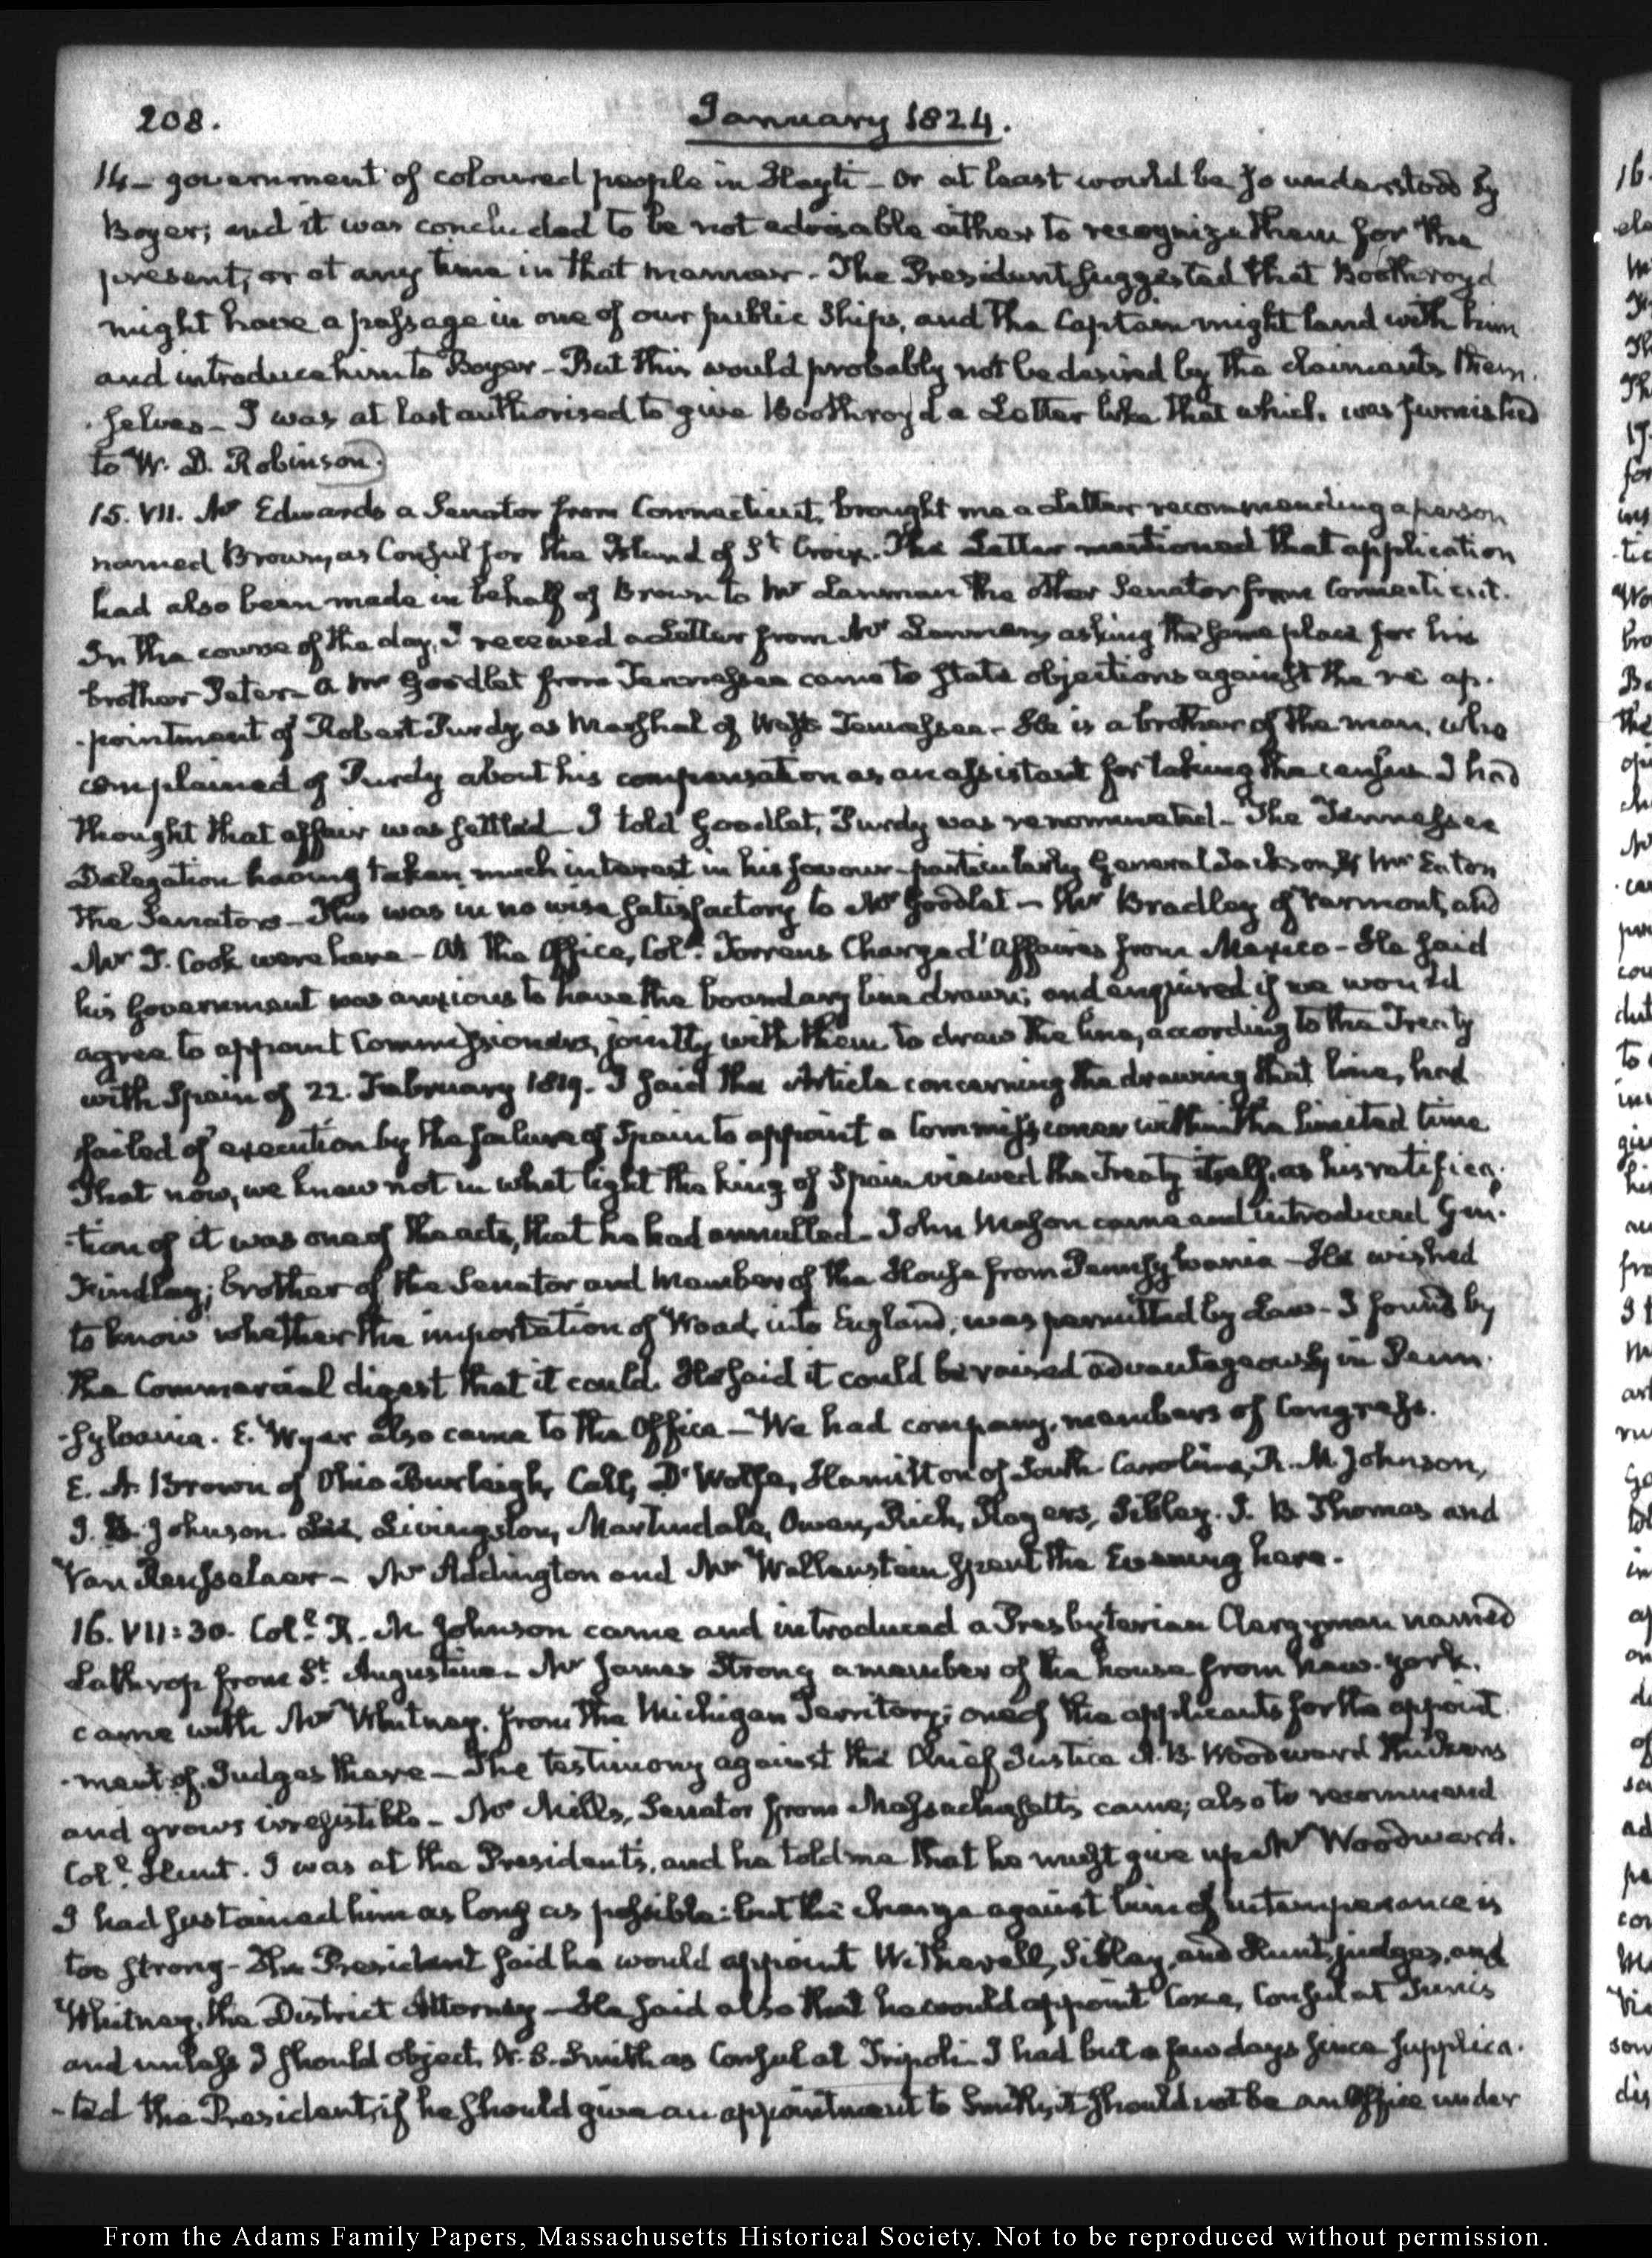 208. January 1824.
14— government of coloured people in Hayti— or at least would be so understood by
Boyer; and it was concluded to be not advisable either to recognize them for the
present, or at any time in that manner. The President suggested that Boothroyd
might have a passage in one of our public Ships, and the Captain might land with him
and introduce him to Boyer— But this would probably not be desired by the claimants them-
-selves— I was at last authorised to give Boothroyd a Letter like that which was furnished
to W. D. Robinson.
15. VII. Mr Edwards a Senator from Connecticut, brought me a letter recommending a person
named Brown, as Consul for the Island of St. Croix. The Letter mentioned that application
had also been made in behalf of Brown to Mr Lanman the other Senator from Connecticut.
In the course of the day, I received a Letter from Mr Lanman, asking the same place for his
brother Peter— a Mr Goodlet from Tennessee came to state objections against the re ap-
-pointment of Robert Purdy, as Marshal of West Tennessee— He is a brother of the man, who
complained of Purdy about his compensation as an assistant for taking the census I had
thought that affair was settled— I told Goodlet, Purdy was renominated— The Tennessee
Delegation having taken much interest in his favour—particularly General Jackson & Mr Eaton
the Senators— This was in no wise satisfactory to Mr Goodlet— Mr Bradley of Vermont, and
Mr D. Cook were here— At the Office, Coll. Torrens Chargé d'Affaires from Mexico— He said
his Government was anxious to have the boundary line drawn; and enquired if we would
agree to appoint Commissioners, jointly with them to draw the line, according to the Treaty
with Spain of 22. February 1819. I said the Article concerning the drawing that line, had
failed of execution by the failure of Spain to appoint a Commissioner within the limited time
That now, we knew not in what light the king of Spain viewed the Treaty itself, as his ratifica-
-tion of it was one of the acts, that he had annulled— John Mason came and introduced Genl.
Findlay; brother of the Senator and Member of the House from Pennsylvania— He wished
to know whether the importation of Woad, into England, was permitted by Law— I found by
the Commercial digest that it could. He said it could be raised advantageously in Penn-
-sylvania. E. Wyer also came to the Office— We had company, members of Congress.
E. A. Brown of Ohio Burleigh, Call, D'Wolfe, Hamilton of South-Carolina, R. M. Johnson,
J. Johnson. Lee, Livingston, Martindale, Owen, Rich, Rogers, Sibley. J. B. Thomas and
Van Rensselaer— Mr Addington and Mr Wallenstein spent the Evening here.
16. VII:30. Coll. R. M. Johnson came and introduced a Presbyterian Clergyman named
Lathrop from St. Augustine— Mr James Strong a member of the house from New-York,
came with Mr Whitney, from the Michigan Territory; one of the applicants for the appoint-
-ment of Judges there— The testimony against the Chief Justice A. B. Woodward thickens
and grows irresistible— Mr Mills, Senator from Massachusetts, came; also to recommend
Coll. Hunt. I was at the President's, and he told me that he must give up Mr Woodward.
I had sustained him as long as possible: but the charge against him of intemperance is
too strong— The President said he would appoint Witherell, Sibley, and Hunt, judges, and
Whitney, the District Attorney— He said also that he would appoint Coxe, Consul at Tunis
and unless I should object, W. S. Smith as Consul at Tripoli— I had but a few days since supplica-
-ted the President, if he should give an appointment to Smith, it should not be an Office under
From the Adams Family Papers, Massachusetts Historical Society. Not to be reproduced without permission.